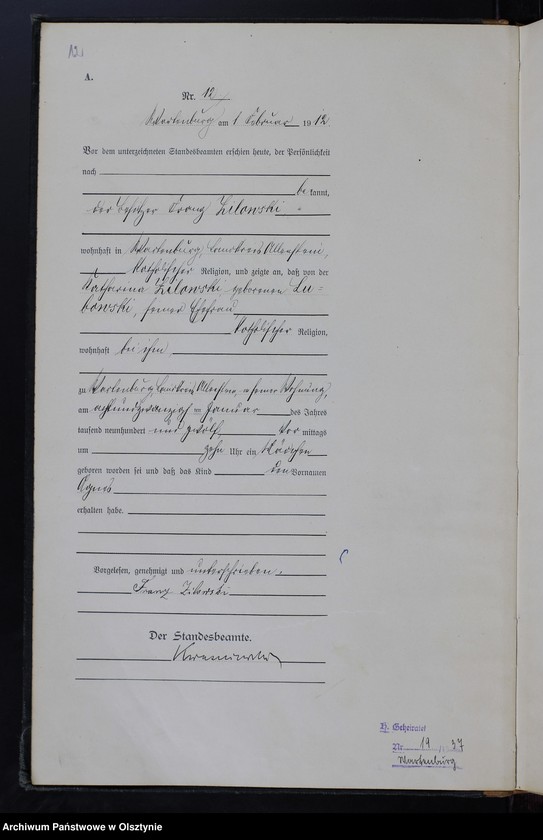 12.
A.
Nr. 12
Wartenburg am 1 Februar 1912
Vor dem unterzeichneten Standesbeamten erschien heute, der Persönlichkeit
nach
be kannt,
der Besitzer Franz Zilowski
wohnhaft in Wartenburg, Landkreis Allenstein,
katholischer Religion, und zeigte an, daß von der
Katharina Zilowski geborenen Lu=
bowski, seiner Ehefrau
katholischer Religion,
wohnhaft bei ihm,
zu Wartenburg, Landkreis Allenstein, in seiner Wohnung,
am achtundzwanzigsten Januar des Jahres
tausend neunhundert und zwölf Vor mittags
um zehn Uhr ein Mädchen
geboren worden sei und daß das Kind den Vornamen
Agnes
erhalten habe.
Vorgelesen, genehmigt und unterschrieben.
Franz Zilowski
Der Standesbeamte.
H. Geheiratet
Nr. 19 37
Wartenburg
Archiwum Państwowe w Olsztynie